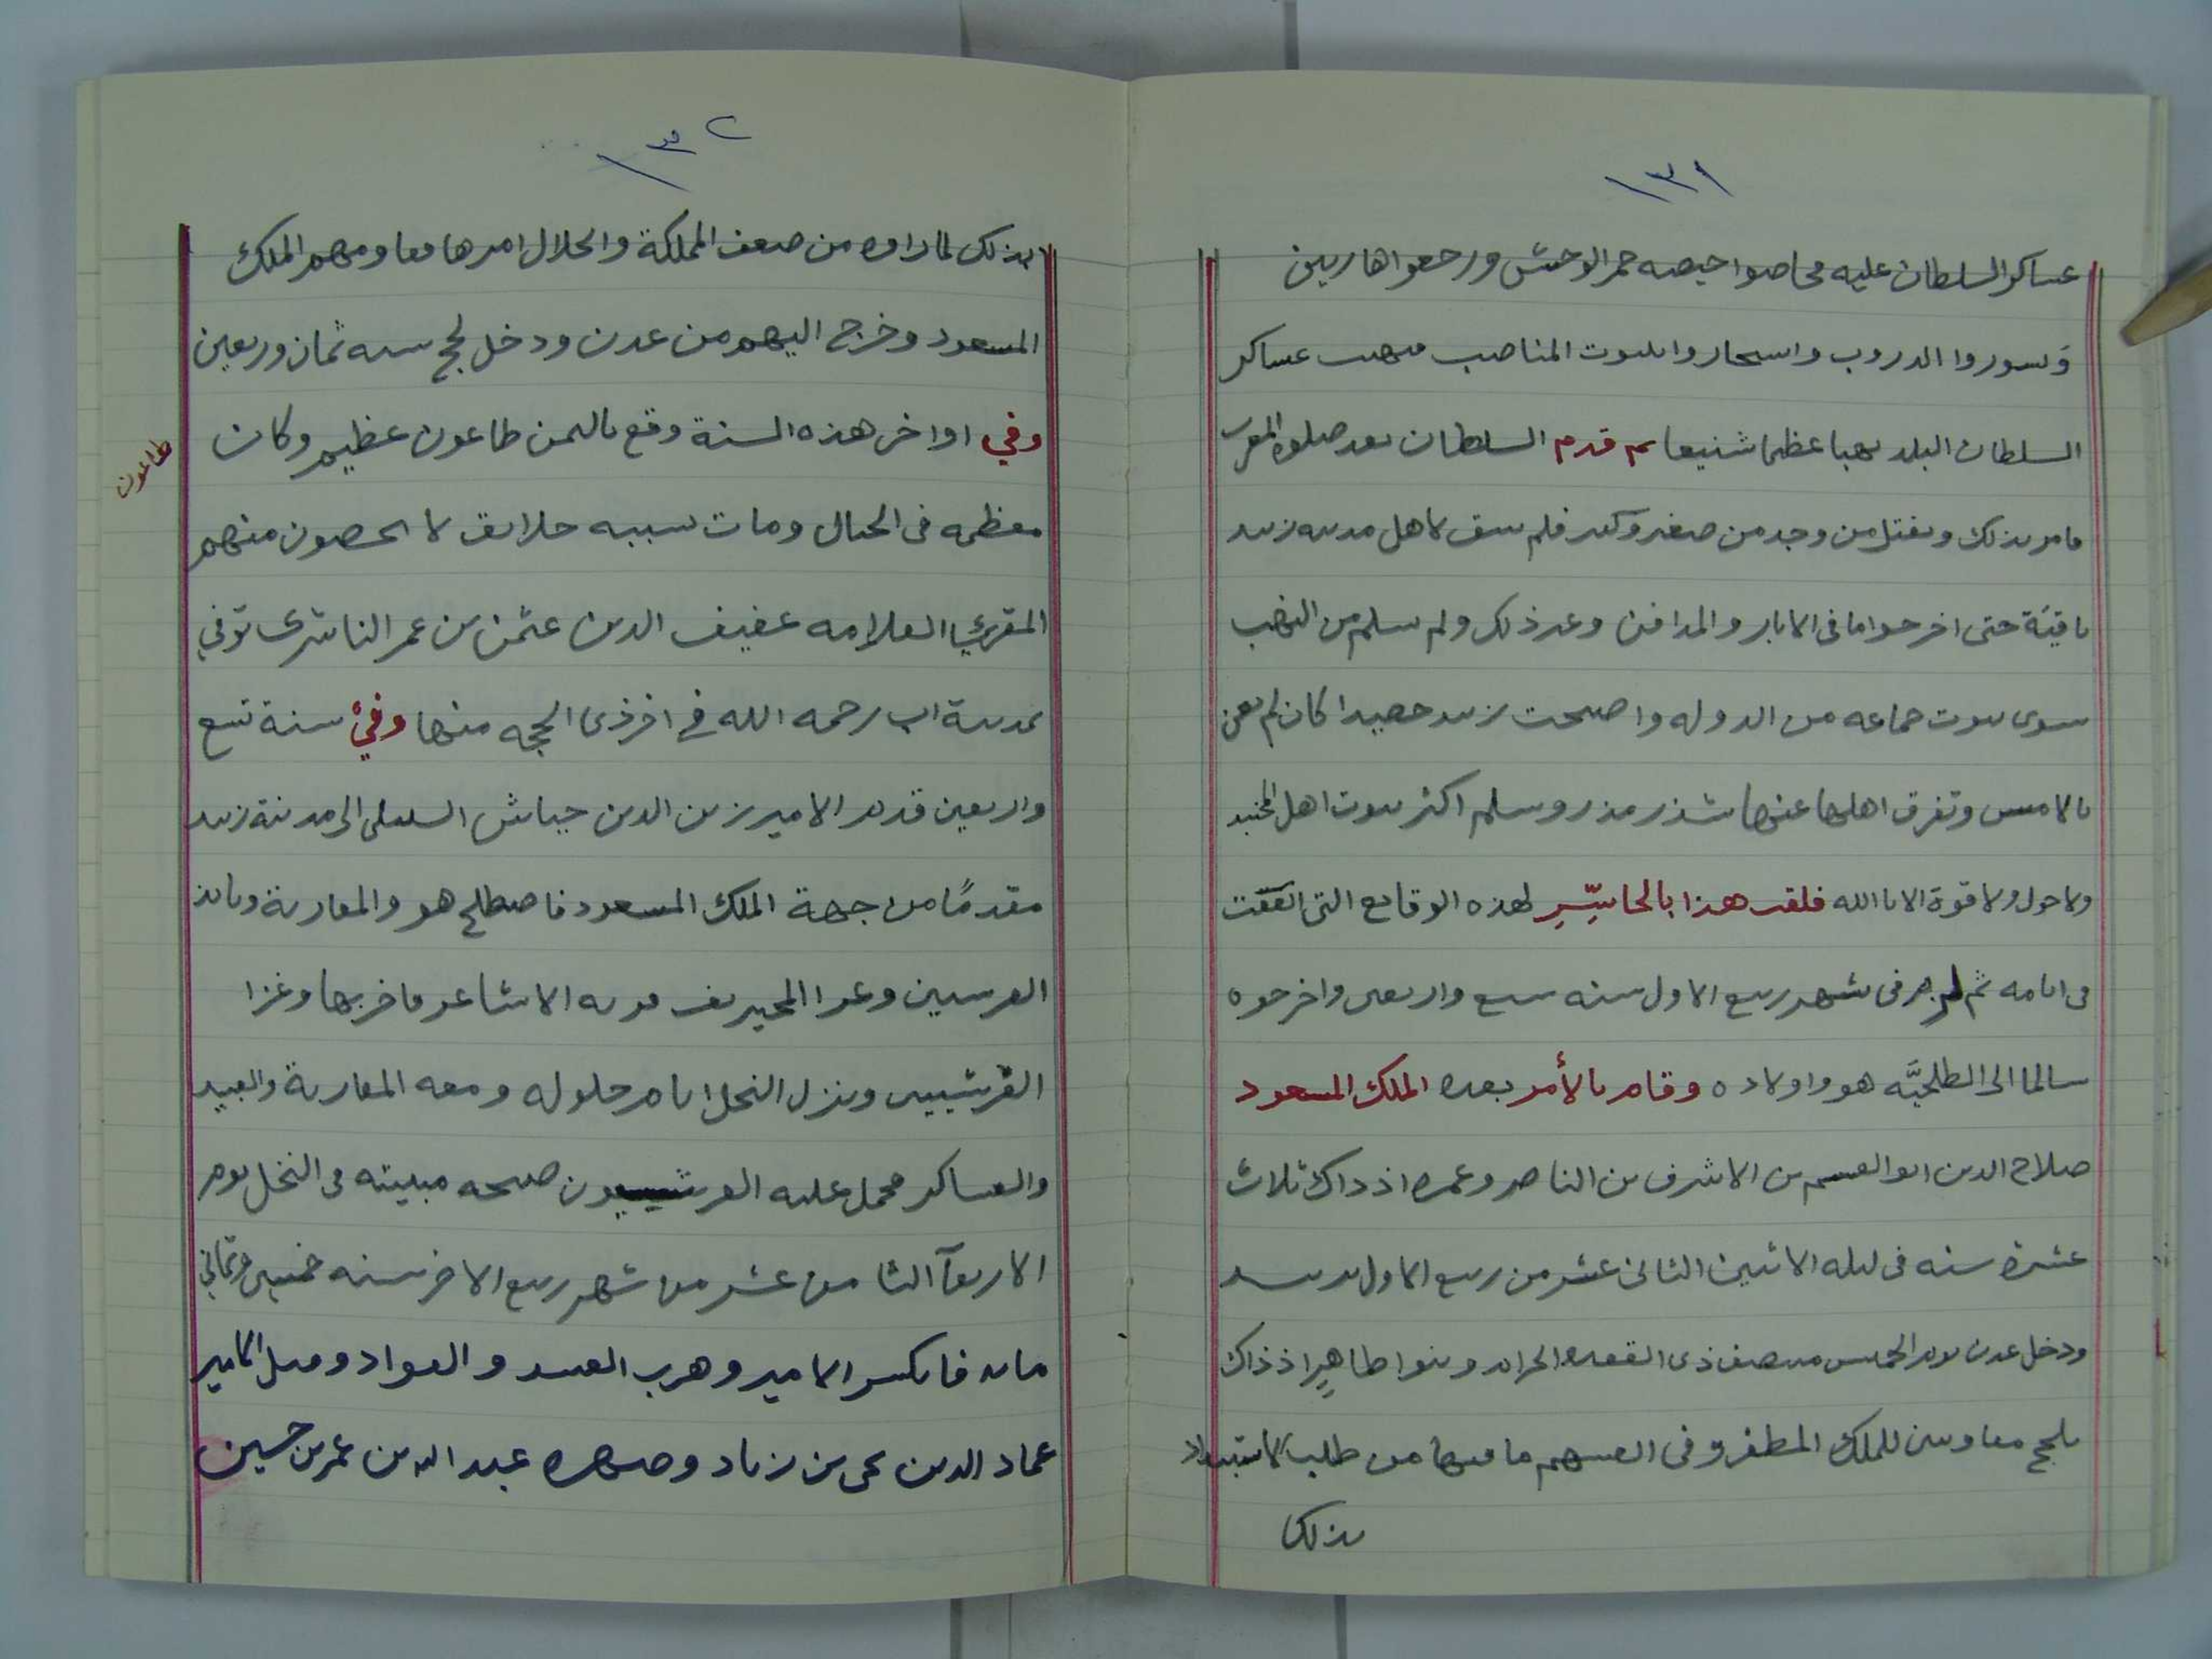 ١٣١
عساكر السلطان عليه فحاصوا حيصه حمر الوحش ورجعوا هاربين
وتسوروا الدروب واستجاروا ببيوت المناصب فنهبت عساكر
السلطان البلد نهبا عظيما شنيعا ثم قدم السلطان بعد صلوة المغرب
فامر بذلك وبقتل من وجد من صغير وكبير فلم يبق لاهل مدينه زبيد
باقيَة حتى اخرجوا ما فى الابار والمدافن وغير ذلك ولم يسلم من النهب
سوى بيوت جماعه من الدوله واصبحت زبيد حصيدا كان لم تغن
بالامس وتفرق اهلها عنها شذر مذر وسلم اكثر بيوت اهل المجنبد
ولا حول ولا قوة الا بالله فلقب هذا بالحاسِّرِ لهذه الوقايع التى اتفقت
فى ايامه ثم لزم فى شهر ربيع الاول سنه سبع واربعين واخرجوه
سالما الى الطلحيَّه هو واولاده وقام بالأمر بعده الملك المسعود
صلاح الدين ابو القسم بن الاشرف بن الناصر وعمره اذ ذاك ثلاث
عشرة سنه فى ليله الاثنين الثانى عشر من ربيع الاول بزبيد
ودخل عدن يوم الخميس منتصف ذى القعده الحرام وبنوا طاهِرِ اذ ذاك
بلحج معاونين للملك المظفر وفى انفسهم ما فيها من طلب الاستبداد
بذلك
١٣٢
بذلك لما راوه من ضعف المملكة وانحلال امرها فقاومهم الملك
المسعود وخرج اليهم من عدن ودخل لحج سنه ثمان وربعين
وفي اواخر هذه السنة وقع باليمن طاعون عظيم وكان
طاعون
معظمه فى الجبال ومات بسببه خلايق لا يحصون منهم
المقري العلامه عفيف الدين عثمن بن عمر الناشرى توفي
بمدينة اب رحمه الله في اخر ذى الحجه منها وفي سنة تسع
واربعين قدم الامير زين الدين جياش السنبلى الى مدينة زبيد
مقدمًا من جهة الملك المسعود فاصطلح هو والمعازبة وباين
القرشيين وغزا المخيريف قريه الاشاعر فاخربها وغزا
القرشيين ونزل النخل ايام حلوله ومعه المعازبة والعبيد
والعساكر فحمل عليه القرشيون صبحه مبيته فى النخل يوم
الاربعآ الثامن عشر من شهر ربيع الاخر سنه خمسين وثماني
مايه فانكسر الامير وهرب العبيد والقواد وقتل الامير
عماد الدين يحى بن زياد وصهره عبد الله بن عمر بن حسين